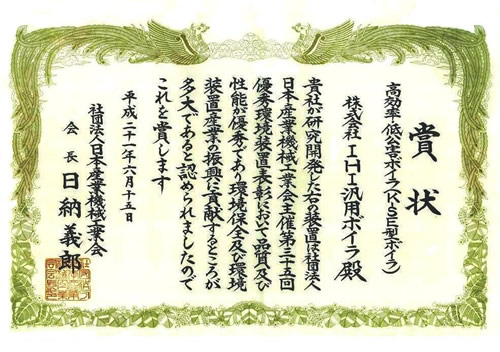 賞状
高効率・低公害ボイラ(KSE型ボイラ)
株式会社IHI汎用ボイラ殿
貴社が研究開発した右の装置は社団法人
日本産業機械工業会主催第三十五回
優秀環境装置表彰において品質及び
性能が優秀であり環境保全及び環境
装置産業の振興に貢献するところが
多大であると認められましたので
これを賞します
平成二十一年六月十五日
社団法人日本産業機械工業会
会長 日納義郎